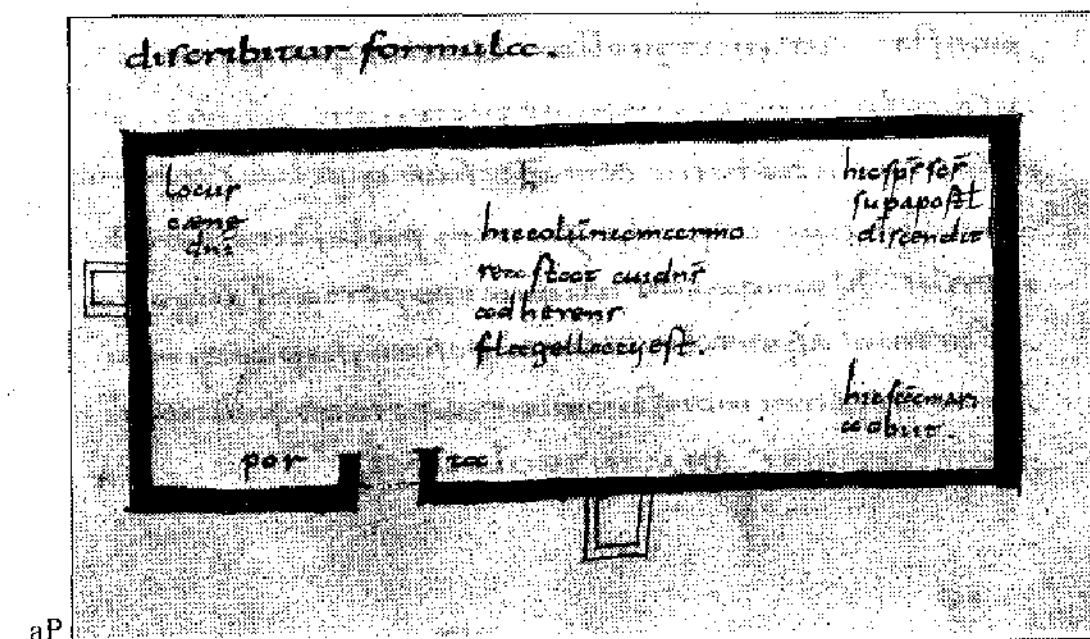 discribitur formula.
locus
cęnę
dnī
h
hic colūna marmo
rea stat cui dns̄
adherens
flagellatus est.
hic sp̄s sc̄s
sup apostl
discendit
hic sc̄a mari
a obiit.
por ta.
aP